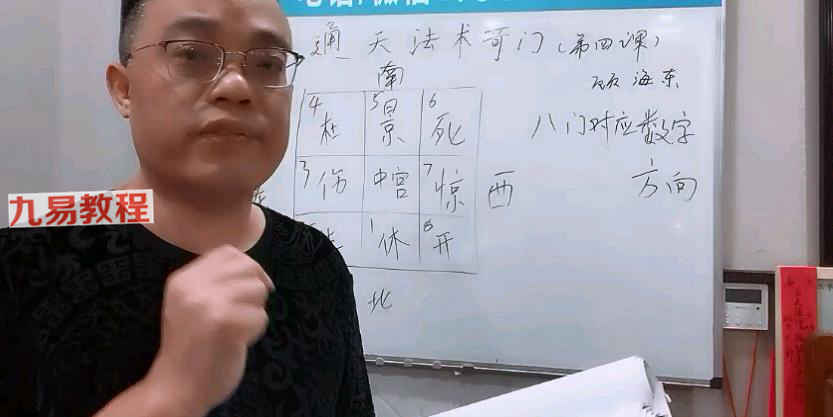 通天法术奇门(第四课)
南
海东
4杜 5景 6死
八门对应数字
3伤 中宫 7惊 西
方向
1休 8开
北
九易教程